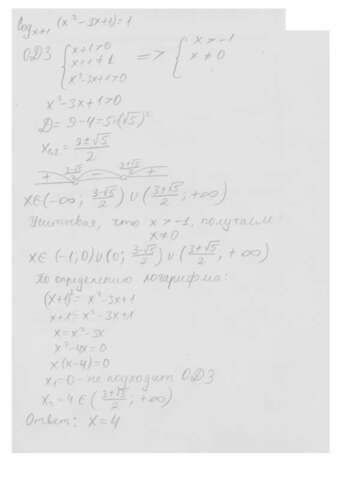 log_{x+1} (x²-3x+1)=1
ОДЗ { x+1>0 ; x+1≠1 ; x²-3x+1>0 => { x>-1 ; x≠0
x²-3x+1>0
D=9-4=5=(√5)²
x_{1,2}=\frac{3±√5}{2}
+ \frac{3-√5}{2} - \frac{3+√5}{2} +
x∈(-∞; \frac{3-√5}{2})∪(\frac{3+√5}{2}; +∞)
Учитывая, что x>-1, получаем:
x≠0
x∈ (-1;0)∪(0; \frac{3-√5}{2})∪(\frac{3+√5}{2}; +∞)
По определению логарифма:
(x+1)¹= x²-3x+1
x+1=x²-3x+1
x=x²-3x
x²-4x=0
x(x-4)=0
x₁=0 - не подходит ОДЗ
x₂=4∈(\frac{3+√5}{2}; +∞)
Ответ: x=4